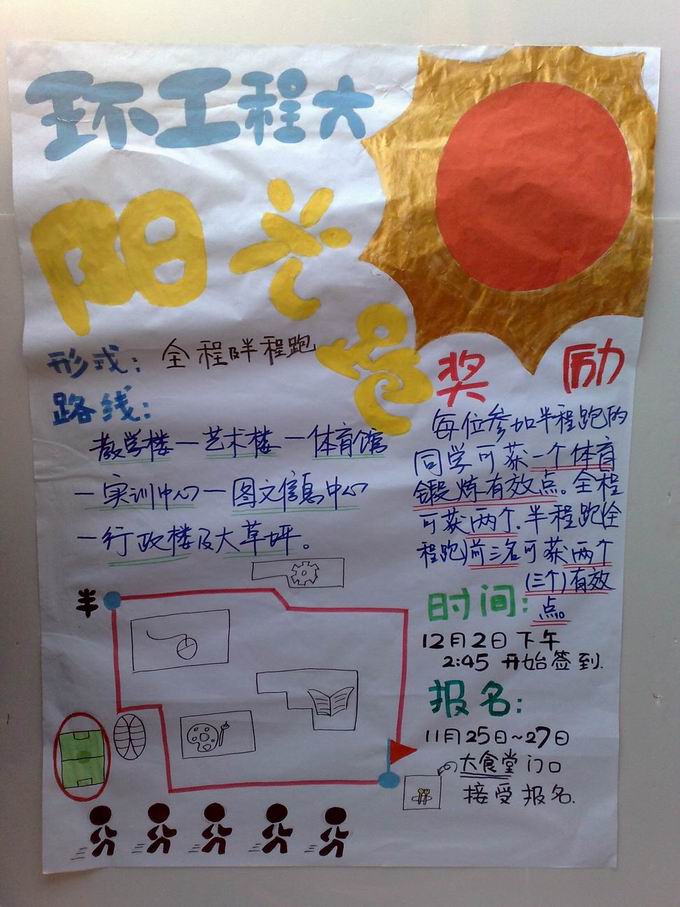 环工程大
阳光跑
形式：全程半程跑
路线：
教学楼—艺术楼—体育馆
—实训中心—图文信息中心
—行政楼及大草坪。
奖励
每位参加半程跑的
同学可获一个体育
锻炼有效点。全程
可获两个.半程跑(全
程跑)前三名可获两个
(三个)有效
点。
时间：
12月2日下午
2:45 开始签到.
报名：
11月25日~27日
大食堂门口
接受报名.
半